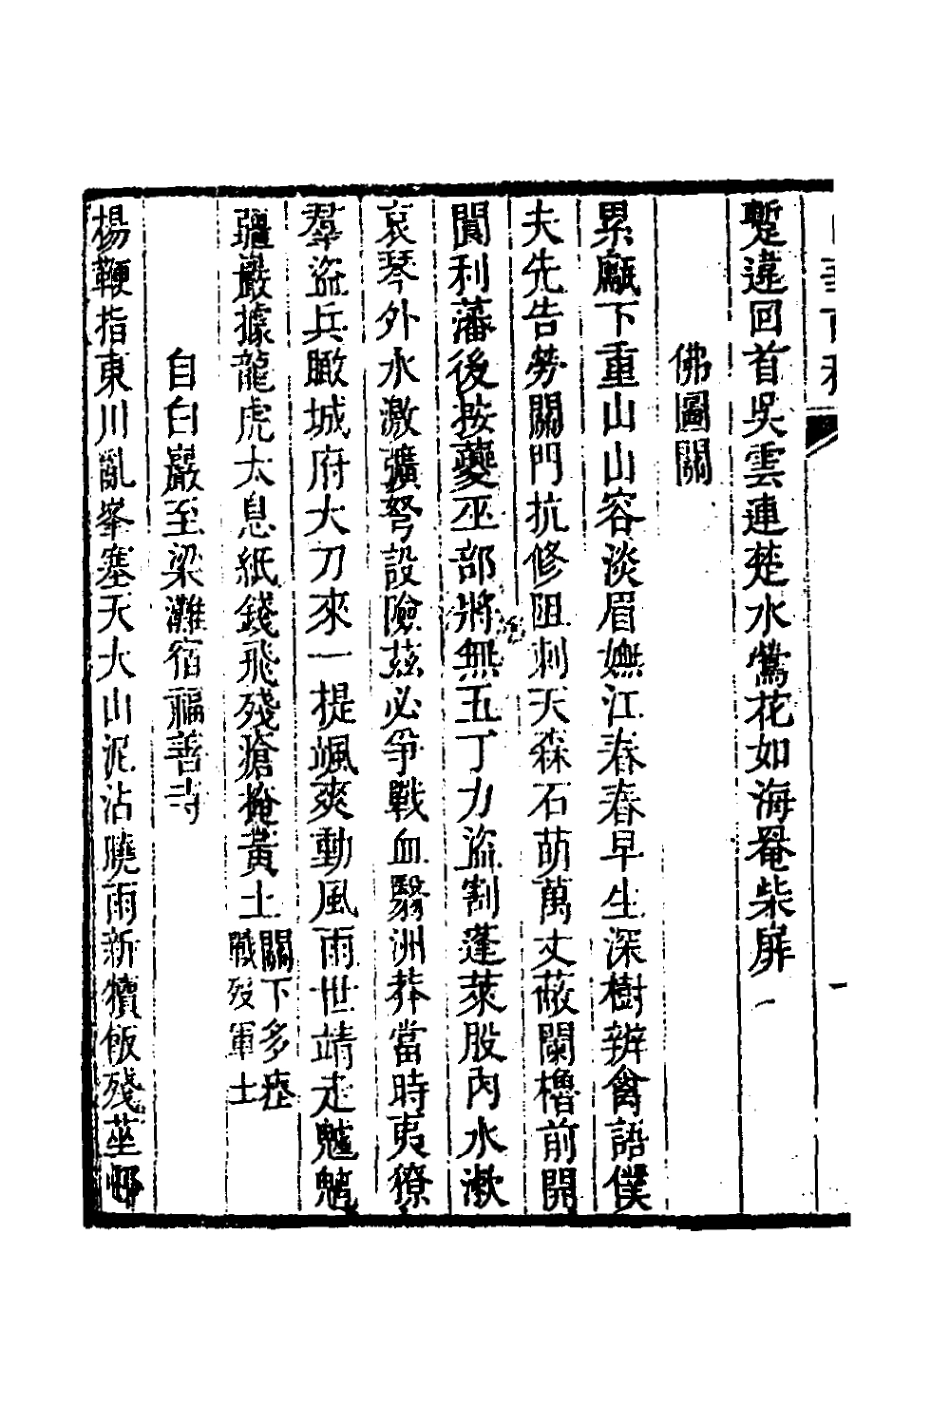 蹔違回首吳雲連楚水鶯花如海罨柴扉
佛圖關
累甗下重山山容淡眉嫵江春春早生深樹辨禽語僕
夫先告勞關門抗修阻刺天森石萌萬丈蔽闌櫓前開
閬利藩後按夔巫部將無五丁力盜割蓬萊股內水漱
哀琴外水激彍弩設險茲必爭戰血翳洲莽當時夷獠
羣盜兵瞰城府大刀來一提颯爽動風雨世靖走魖魑
疆嚴據龍虎太息紙錢飛殘瘡掩黃土關下多瘞戰歿軍士
自白巖至梁灘宿福善寺
楊鞭指東川亂峯塞天大山泥沾曉雨新犢飯殘莝